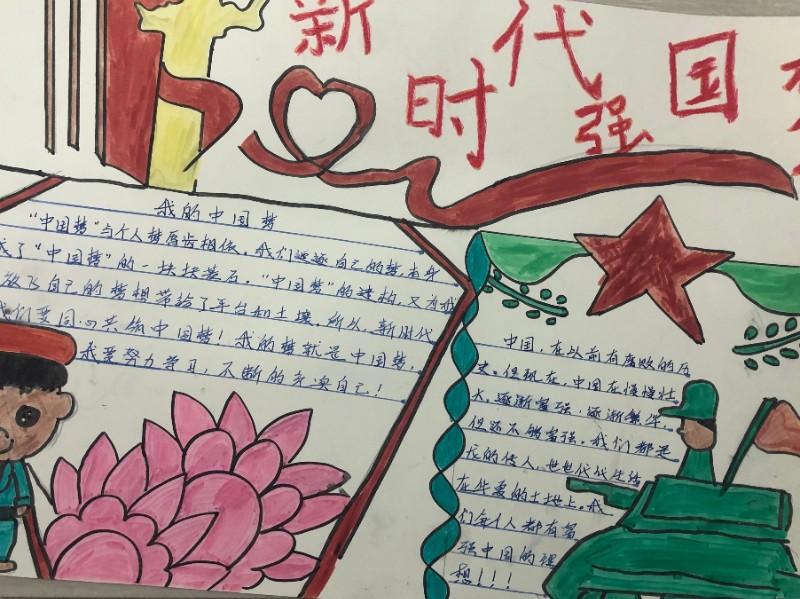 新时代强国
我的中国梦
"中国梦"与个人梦唇齿相依,我们追逐自己的梦,本身
成了"中国梦"的一块块基石。"中国梦"的建构,又为我
放飞自己的梦想带给了平台和土壤。所以,新时代
我们要同心共筑中国梦!我的梦就是中国梦,
我要努力学习,不断的充实自己!
中国,在以前有腐败的历
史。但现在,中国在慢慢壮
大,逐渐富强,逐渐繁华。
但还不够富强。我们都是
龙的传人,世世代代生活
在华夏的土地上。我
们每个人都有富
强中国的理
想!!!